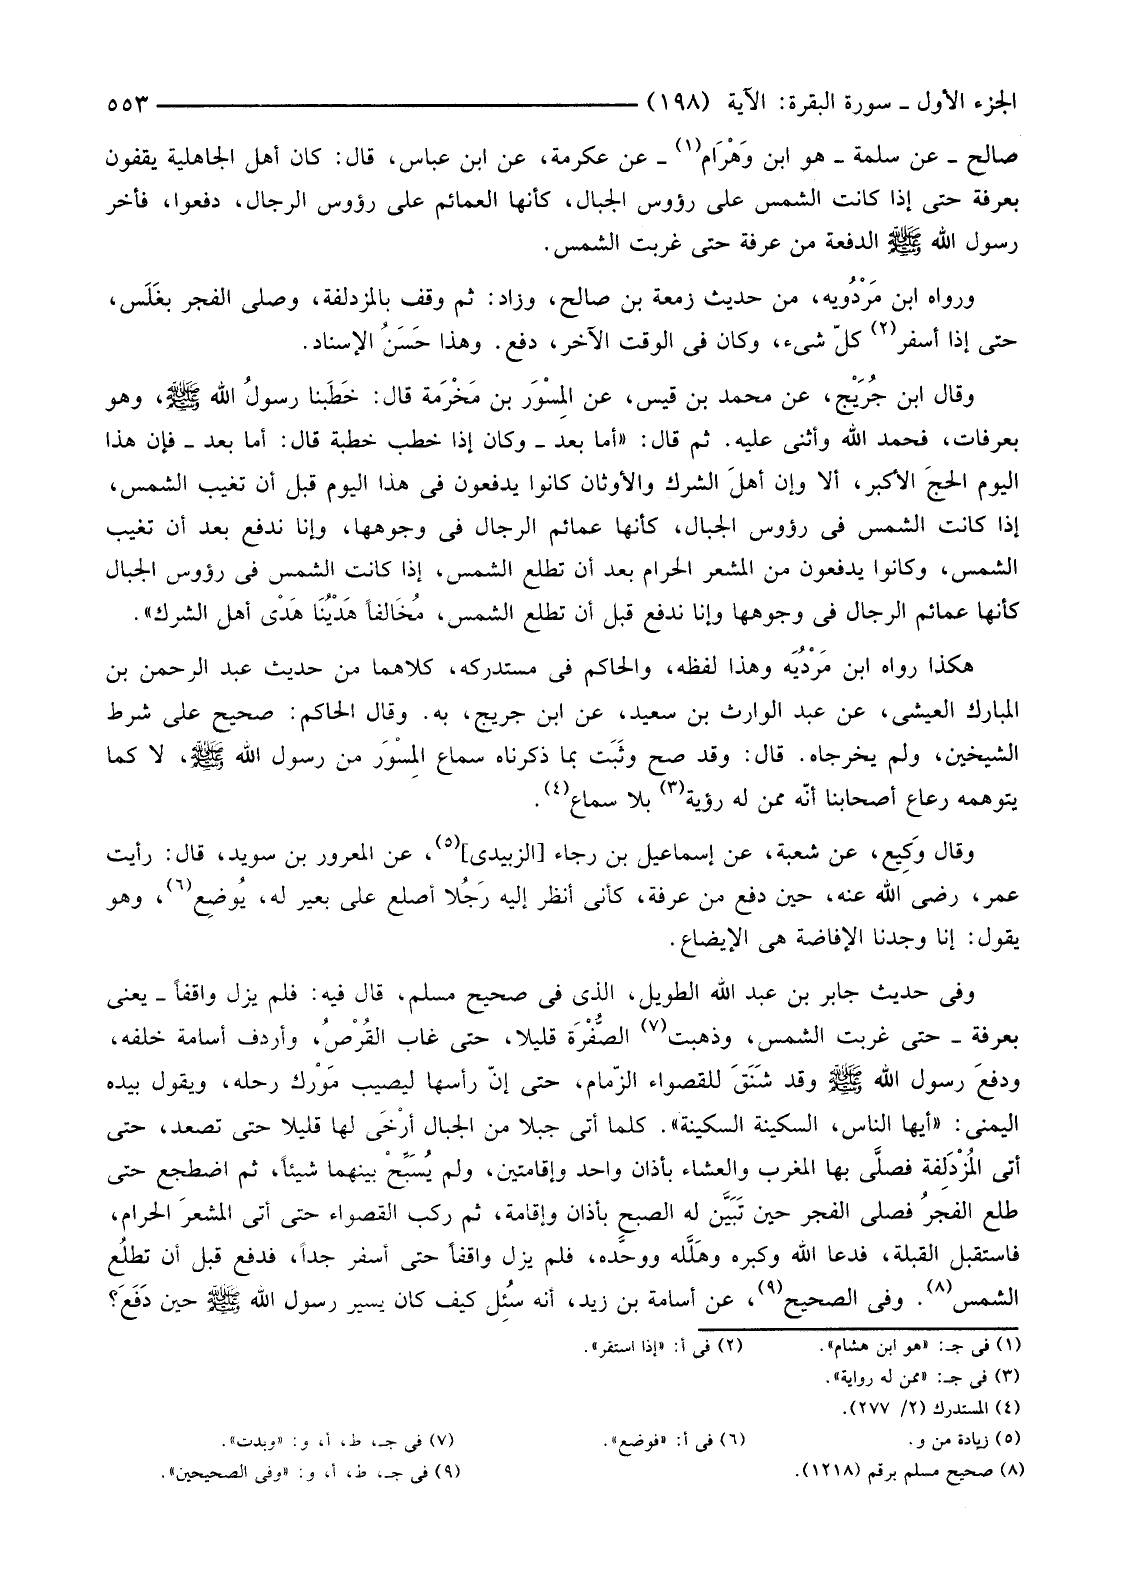 الجزء الأول ـ سورة البقرة: الآية (١٩٨) ٥٥٣
صالح ـ عن سلمة ـ هو ابن وَهْرَام(١) ـ عن عكرمة، عن ابن عباس، قال: كان أهل الجاهلية يقفون
بعرفة حتى إذا كانت الشمس على رؤوس الجبال، كأنها العمائم على رؤوس الرجال، دفعوا، فأخر
رسول الله ﷺ الدفعة من عرفة حتى غربت الشمس.
ورواه ابن مَرْدُويه، من حديث زمعة بن صالح، وزاد: ثم وقف بالمزدلفة، وصلى الفجر بغَلَس،
حتى إذا أسفر(٢) كلّ شىء، وكان فى الوقت الآخر، دفع. وهذا حَسَنُ الإسناد.
وقال ابن جُرَيْج، عن محمد بن قيس، عن المِسْوَر بن مَخْرَمة قال: خَطَبنا رسولُ الله ﷺ، وهو
بعرفات، فحمد الله وأثنى عليه. ثم قال: «أما بعد ـ وكان إذا خطب خطبة قال: أما بعد ـ فإن هذا
اليوم الحجَ الأكبر، ألا وإن أهلَ الشرك والأوثان كانوا يدفعون فى هذا اليوم قبل أن تغيب الشمس،
إذا كانت الشمس فى رؤوس الجبال، كأنها عمائم الرجال فى وجوهها، وإنا ندفع بعد أن تغيب
الشمس، وكانوا يدفعون من المشعر الحرام بعد أن تطلع الشمس، إذا كانت الشمس فى رؤوس الجبال
كأنها عمائم الرجال فى وجوهها وإنا ندفع قبل أن تطلع الشمس، مُخَالفاً هَدْيُنَا هَدْى أهل الشرك».
هكذا رواه ابن مَرْدُيَه وهذا لفظه، والحاكم فى مستدركه، كلاهما من حديث عبد الرحمن بن
المبارك العيشى، عن عبد الوارث بن سعيد، عن ابن جريج، به. وقال الحاكم: صحيح على شرط
الشيخين، ولم يخرجاه. قال: وقد صح وثَبَت بما ذكرناه سماع المِسْوَر من رسول الله ﷺ، لا كما
يتوهمه رعاع أصحابنا أنّه ممن له رؤية(٣) بلا سماع(٤).
وقال وَكِيع، عن شعبة، عن إسماعيل بن رجاء [الزبيدى](٥)، عن المعرور بن سويد، قال: رأيت
عمر، رضى الله عنه، حين دفع من عرفة، كأنى أنظر إليه رَجُلا أصلع على بعير له، يُوضِع(٦)، وهو
يقول: إنا وجدنا الإفاضة هى الإيضاع.
وفى حديث جابر بن عبد الله الطويل، الذى فى صحيح مسلم، قال فيه: فلم يزل واقفاً ـ يعنى
بعرفة ـ حتى غربت الشمس، وذهبت(٧) الصُّفْرَة قليلا، حتى غاب القُرْصُ، وأردف أسامة خلفه،
ودفعَ رسول الله ﷺ وقد شَنَقَ للقصواء الزّمام، حتى إنّ رأسها ليصيب مَوْرك رحله، ويقول بيده
اليمنى: «أيها الناس، السكينة السكينة». كلما أتى جبلا من الجبال أرْخَى لها قليلا حتى تصعد، حتى
أتى المُزْدَلِفة فصلَّى بها المغرب والعشاء بأذان واحد وإقامتين، ولم يُسَبِّحْ بينهما شيئاً، ثم اضطجع حتى
طلع الفجرُ فصلى الفجر حين تَبَيَّن له الصبح بأذان وإقامة، ثم ركب القصواء حتى أتى المشعرَ الحرام،
فاستقبل القبلة، فدعا الله وكبره وهَلَّله ووحَّده، فلم يزل واقفاً حتى أسفر جداً، فدفع قبل أن تطلُع
الشمس(٨). وفى الصحيح(٩)، عن أسامة بن زيد، أنه سُئِل كيف كان يسير رسول الله ﷺ حين دَفَعَ؟
(١) فى جـ: «هو ابن هشام». (٢) فى أ: «إذا استقر».
(٣) فى جـ: «ممن له رواية».
(٤) المستدرك (٢/ ٢٧٧).
(٥) زيادة من و. (٦) فى أ: «فوضع». (٧) فى جـ، ط، أ، و: «وبدت».
(٨) صحيح مسلم برقم (١٢١٨). (٩) فى جـ، ط، أ، و: «وفى الصحيحين».